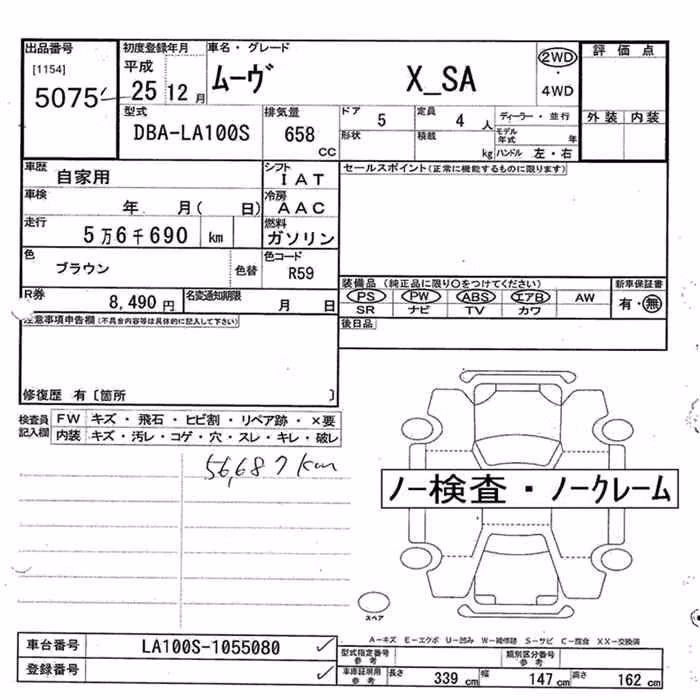 出品番号 初度登録年月 車名・グレード 2WD 評価点
[1154] 平成 ムーヴ X_SA ・
5075 25 12月 4WD
型式 排気量 ドア 5 定員 4人 ディーラー・並行 外装 内装
DBA-LA100S 658 cc 形状 積載 kg モデル年式 年
ハンドル 左・右
車歴 自家用 シフト IAT セールスポイント(正常に機能するものに限ります)
車検 年 月( 日) 冷房 AAC
走行 5万6千690 km 燃料 ガソリン
色 ブラウン 色替 色コード R59
装備品 (純正品に限り○をつけてください) 新車保証書
R券 8,490円 名変通知期限 月 日
PS PW ABS エアB AW 有・無
SR ナビ TV カワ
注意事項申告欄(不具合内容等は具体的に記入して下さい) 後日品
修復歴 有〔箇所 〕
検査員記入欄 FW キズ・飛石・ヒビ割・リペア跡・×要
内装 キズ・汚レ・コゲ・穴・スレ・キレ・破レ
56,687km
ノー検査・ノークレーム
スペア
A-キズ E-エクボ U-凹み W-補修跡 S-サビ C-腐食 XX-交換済
車台番号 LA100S-1055080 型式指定番号 参考 類別区分番号 参考
登録番号 車庫証明用 参考 長さ 339 cm 幅 147 cm 高さ 162 cm